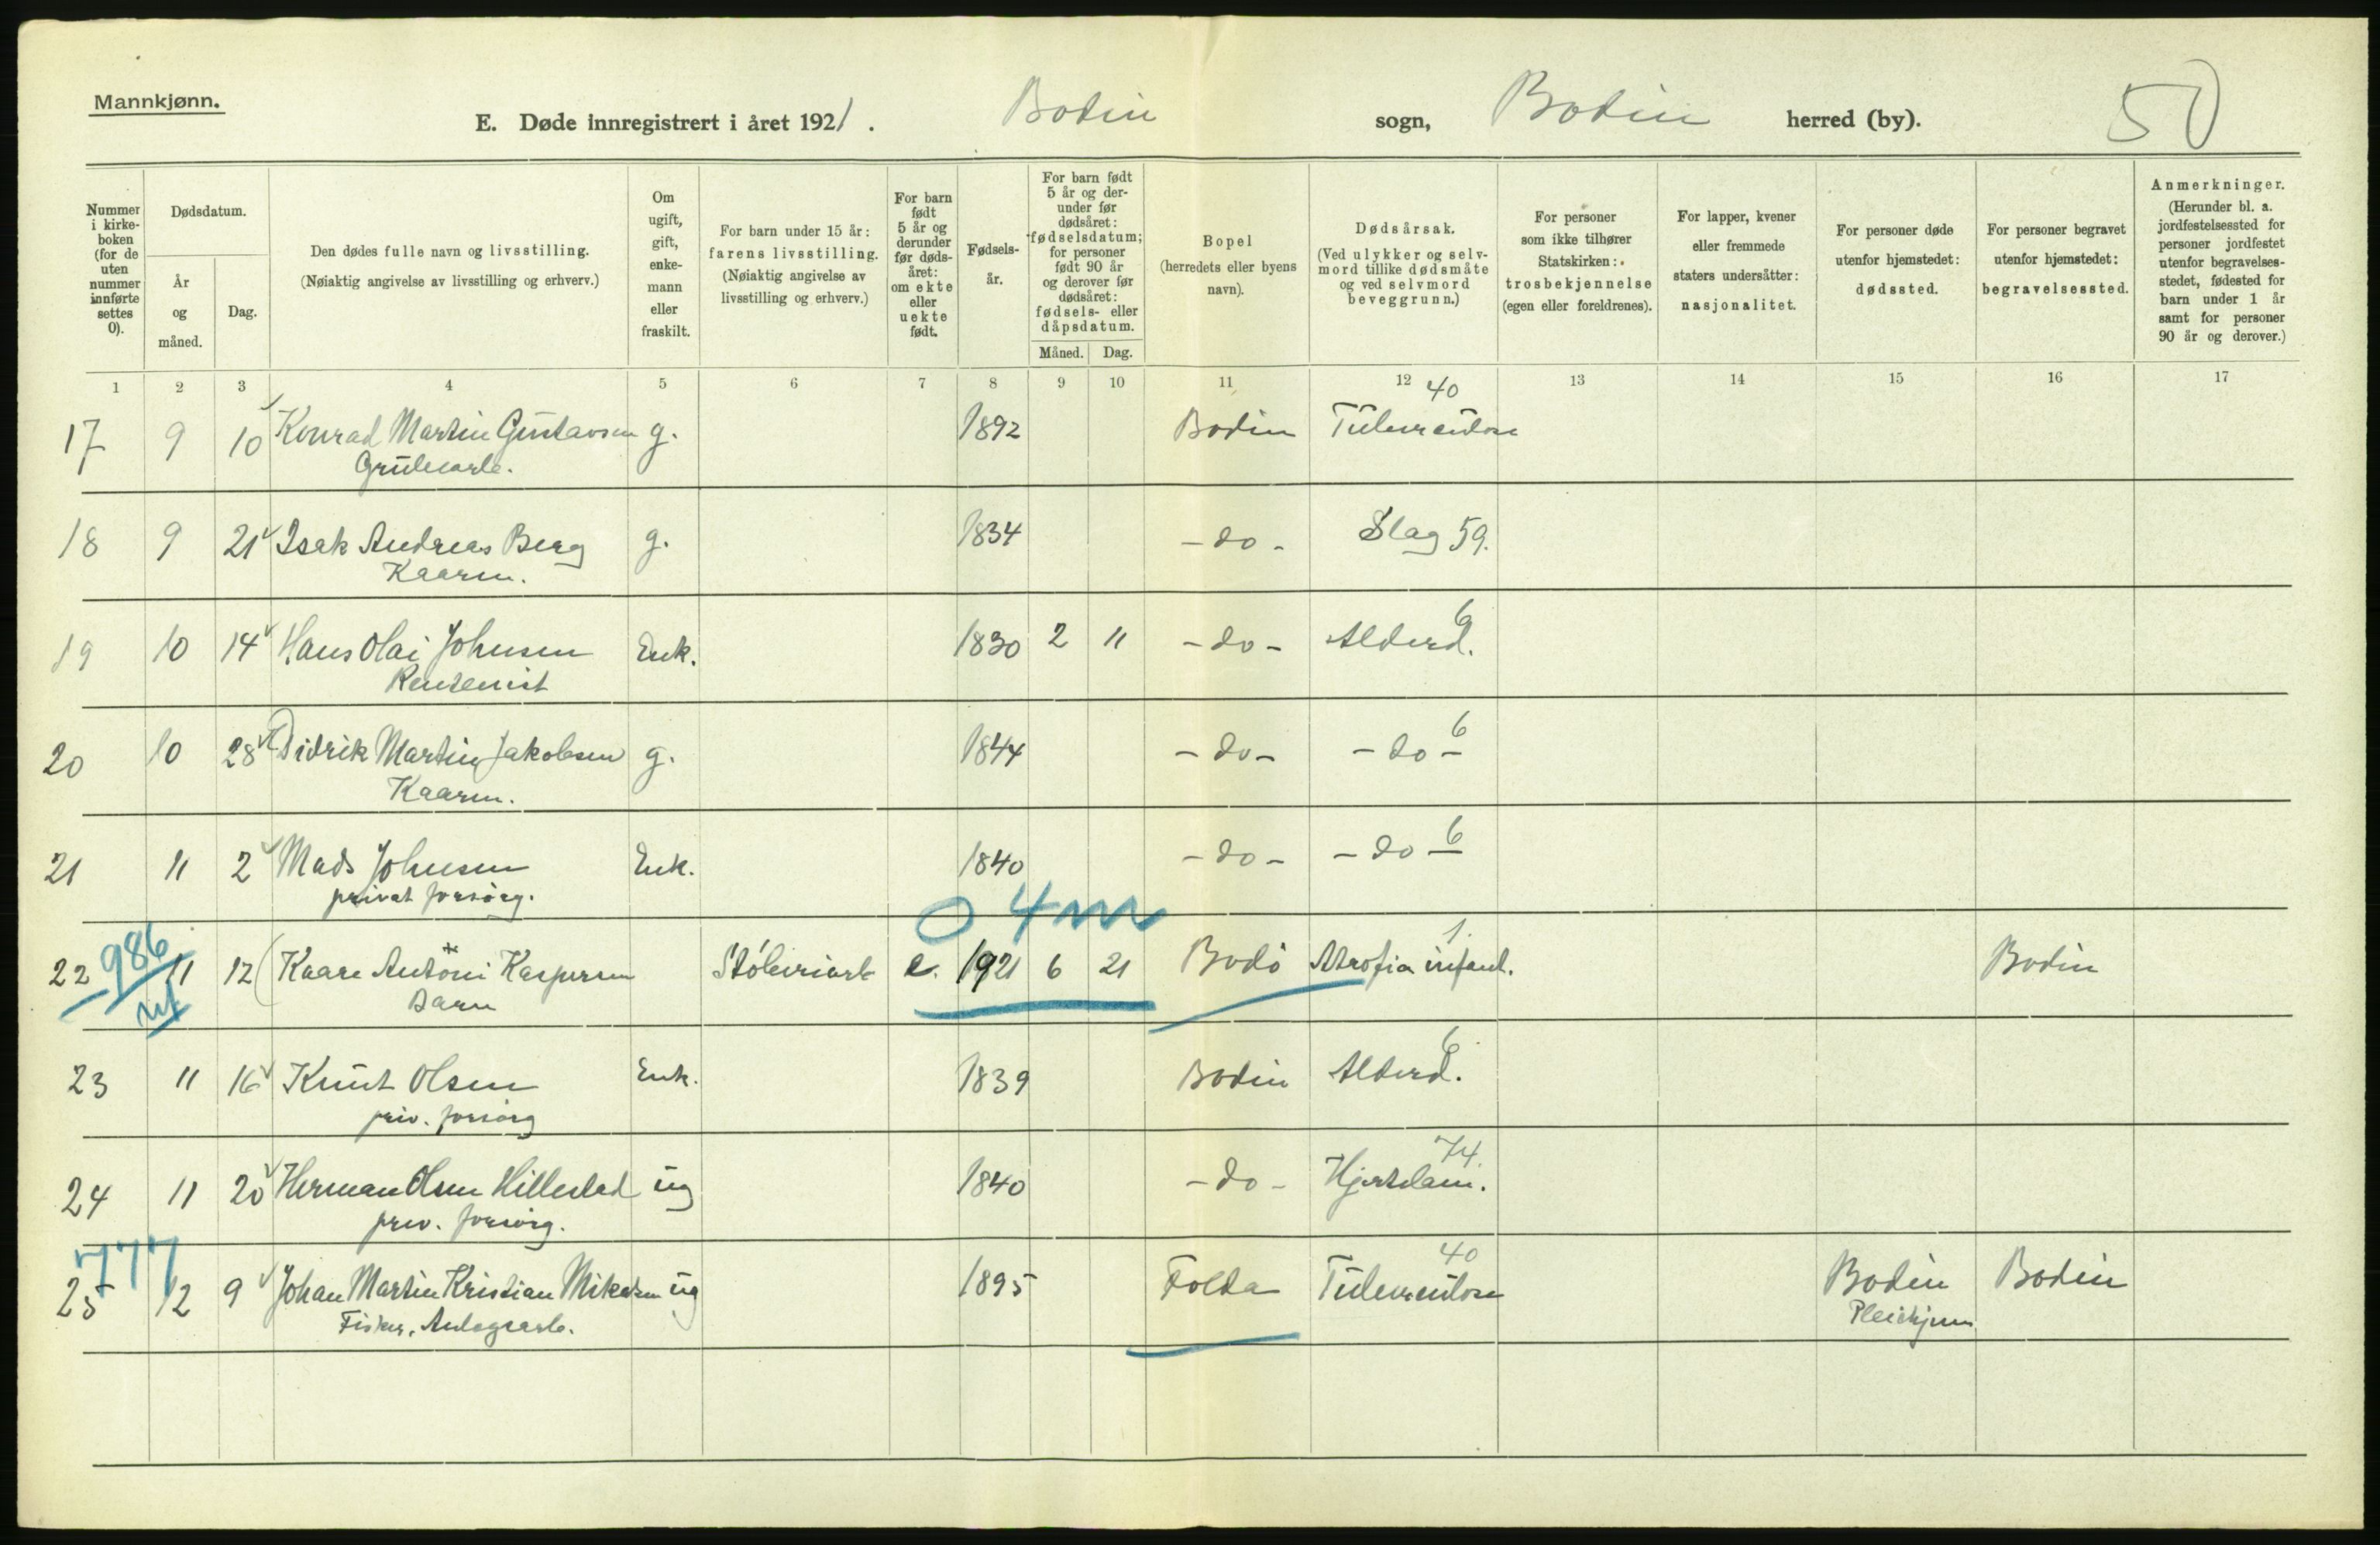 Mannkjønn.
E. Døde innregistrert i året 1921. Bodin sogn, Bodin herred (by). 50
Nummer i kirkeboken (for de uten nummer innførte settes 0).
Dødsdatum.
År og måned.
Dag.
Den dødes fulle navn og livsstilling.
(Nøiaktig angivelse av livsstilling og erhverv.)
Om ugift, gift, enkemann eller fraskilt.
For barn under 15 år: farens livsstilling.
(Nøiaktig angivelse av livsstilling og erhverv.)
For barn født 5 år og derunder før dødsåret: om ekte eller uekte født.
Fødselsår.
For barn født 5 år og derunder før dødsåret: fødselsdatum; for personer født 90 år og derover før dødsåret: fødsels- eller dåpsdatum.
Måned. Dag.
Bopel
(herredets eller byens navn).
Dødsårsak.
(Ved ulykker og selvmord tillike dødsmåte og ved selvmord beveggrunn.)
For personer som ikke tilhører Statskirken: trosbekjennelse (egen eller foreldrenes).
For lapper, kvener eller fremmede staters undersåtter: nasjonalitet.
For personer døde utenfor hjemstedet: dødssted.
For personer begravet utenfor hjemstedet: begravelsessted.
Anmerkninger.
(Herunder bl. a. jordfestelsessted for personer jordfestet utenfor begravelsesstedet, fødested for barn under 1 år samt for personer 90 år og derover.)
1 2 3 4 5 6 7 8 9 10 11 12 13 14 15 16 17
40
17 9 10 Konrad Martin Gustavsen g. 1892 Bodin Tuberculose
Grubearb.
18 9 21 Isak Andreas Berg g. 1834 -do- Slag 59.
Kaarm.
6
19 10 14 Hans Olai Johnsen Enk. 1830 2 11 -do- Alderd.
Rentenist
20 10 28 Didrik Martin Jakobsen g. 1844 -do- -do- 6
Kaarm.
21 11 2 Mads Johnsen Enk. 1840 -do- -do- 6
privat forsörg.
0 4 m
986
1.
22 11 12 Kaare Antöni Kaspersen Stöberiarb e. 1921 6 21 Bodö Atrofia infant. Bodin
Barn
6
23 11 16 Knut Olsen Enk. 1839 Bodin Alderd.
priv. forsörg
74.
24 11 20 Herman Olsen Hillestad ug 1840 -do- Hjertelam.
priv. forsörg.
777
40
25 12 9 Johan Martin Kristian Mikalsen ug 1895 Folda Tuberculose Bodin Bodin
Fisker, Anlegsarb. Pleiehjem